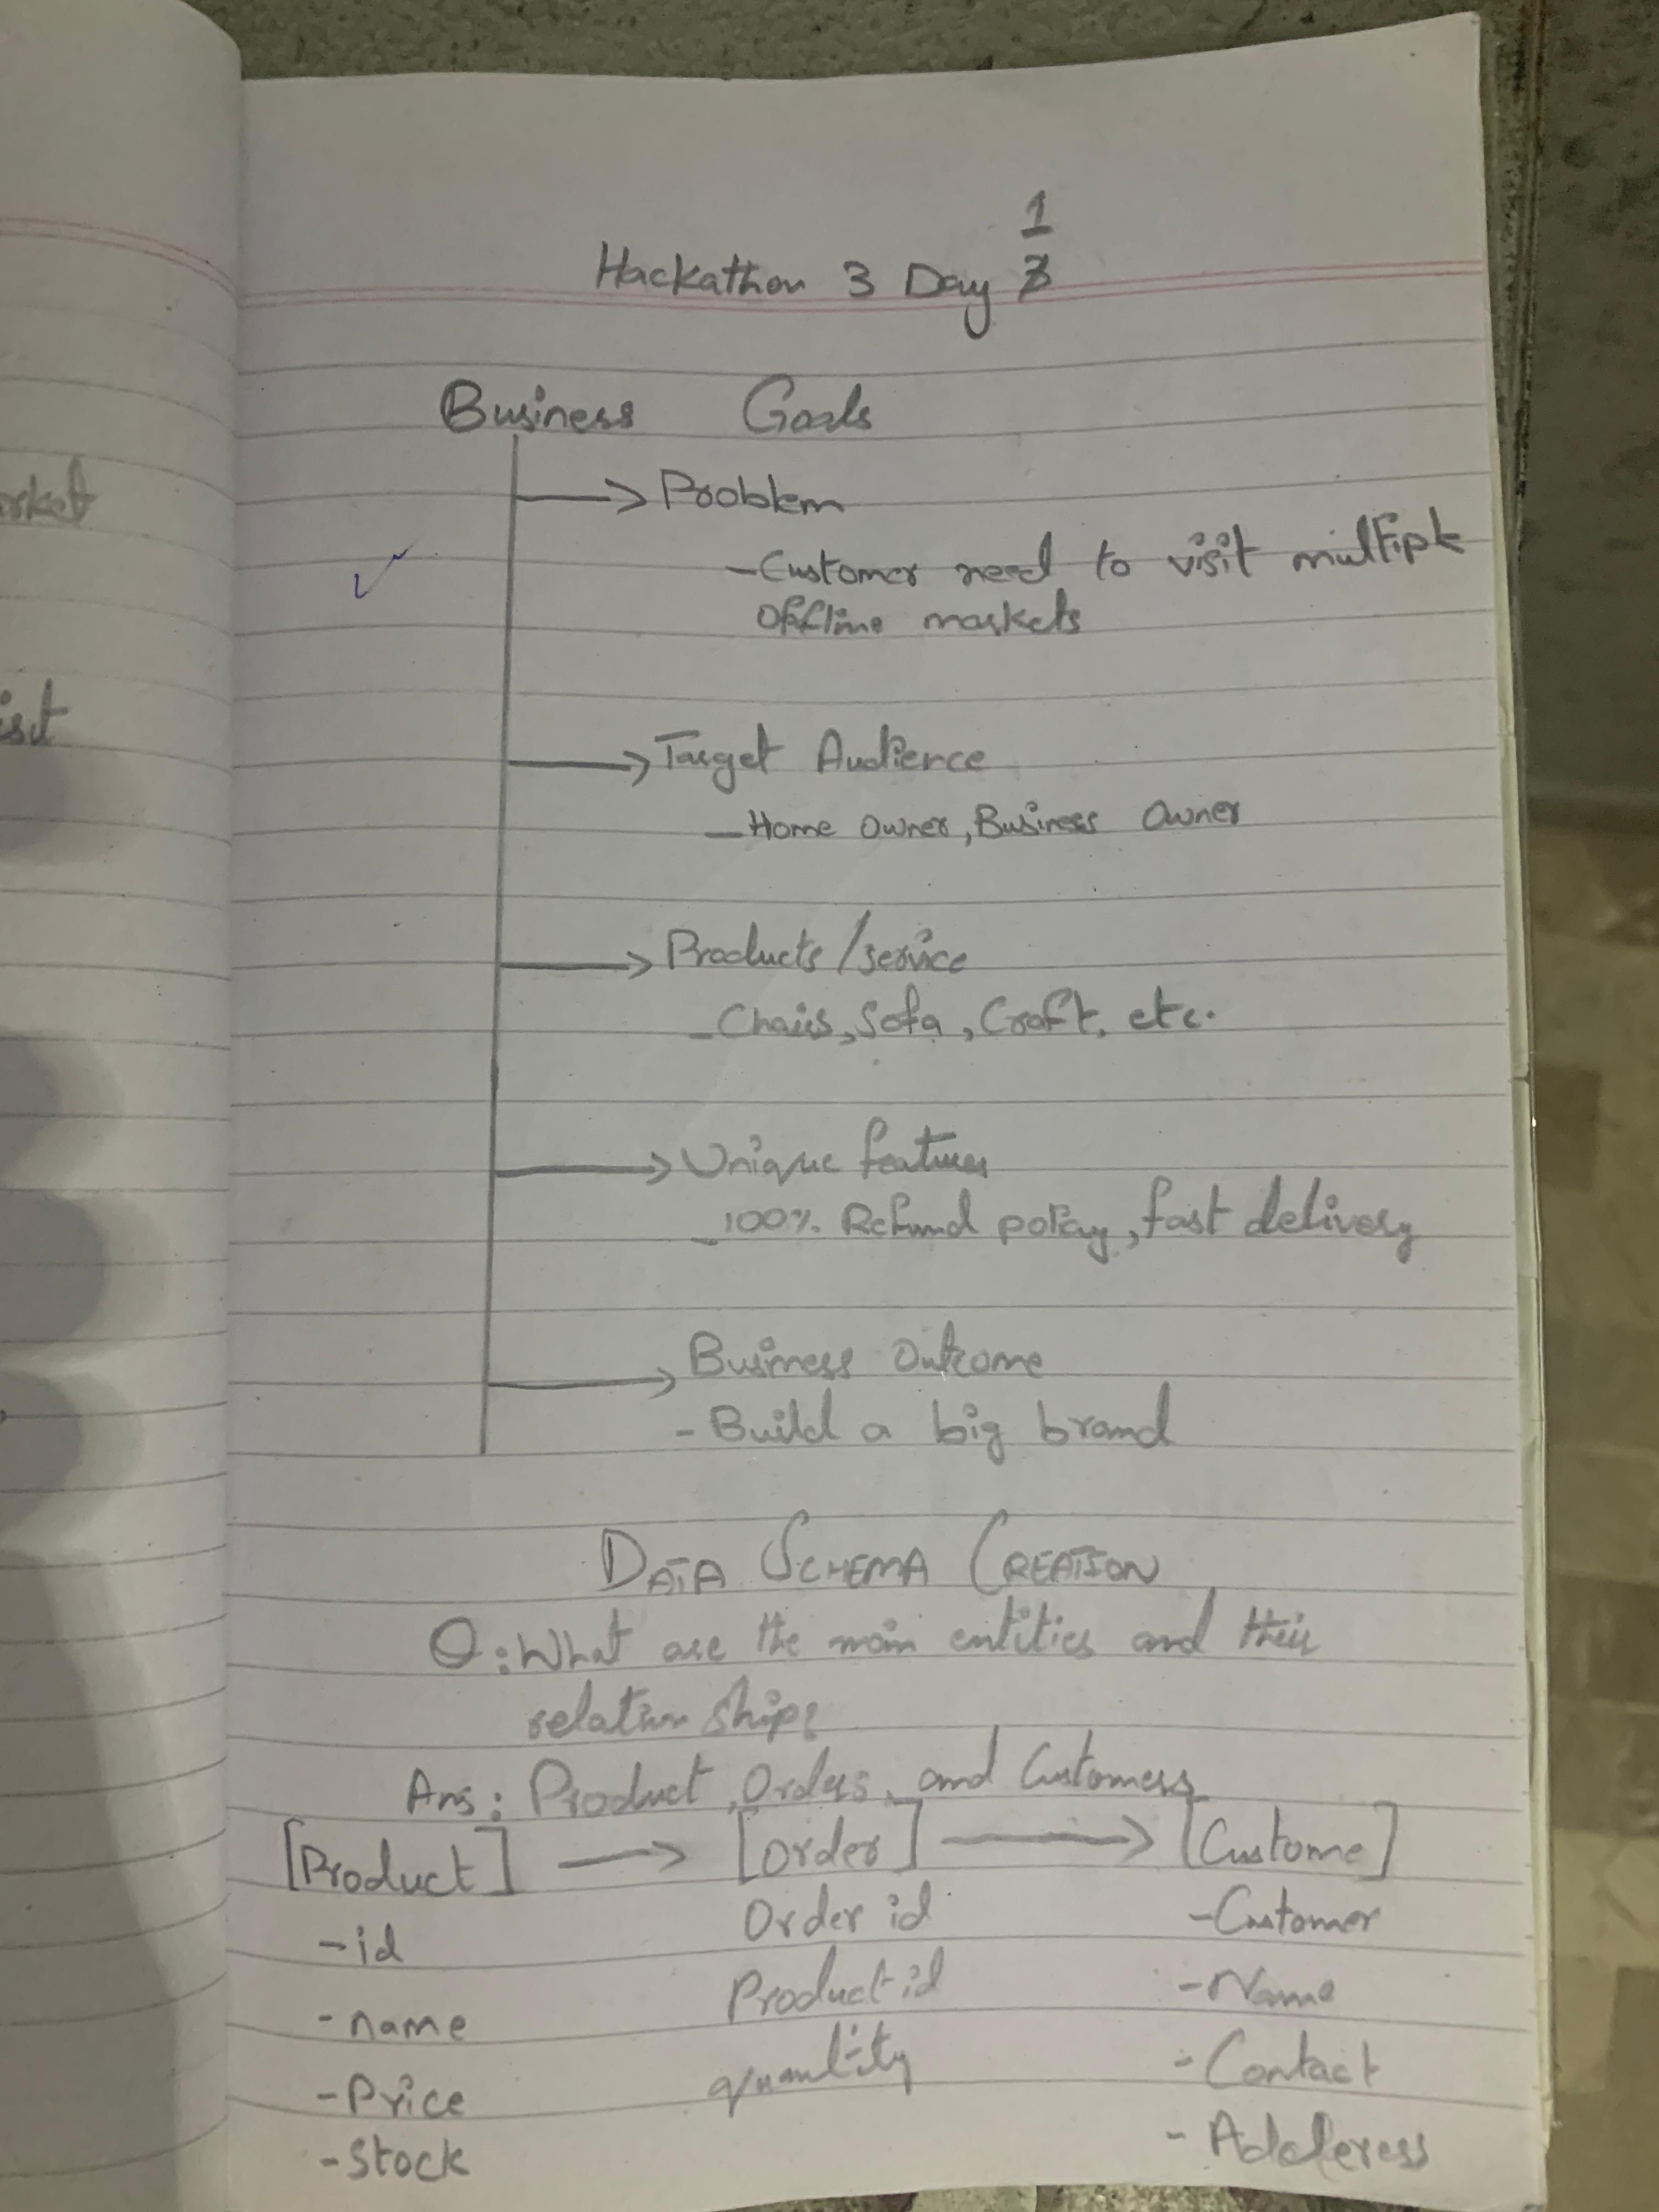 1
Hackathon 3 Day
Business Goals
Problem
-Customer need to visit multiple
offline markets
Target Audience
-Home Owner, Business Owner
Products/service
-Chairs, Sofa, Croft, etc.
Unique features
-100% Refund policy, fast delivery
Business Outcome
-Build a big brand
DATA SCHEMA CREATION
Q: What are the main entities and their
relationships
Ans: Product, Orders, and Customers
[Product] → [Order] → [Custome]
-id Order id -Customer
-name Product id -Name
-Price quantity -Contact
-Stock -Adderess